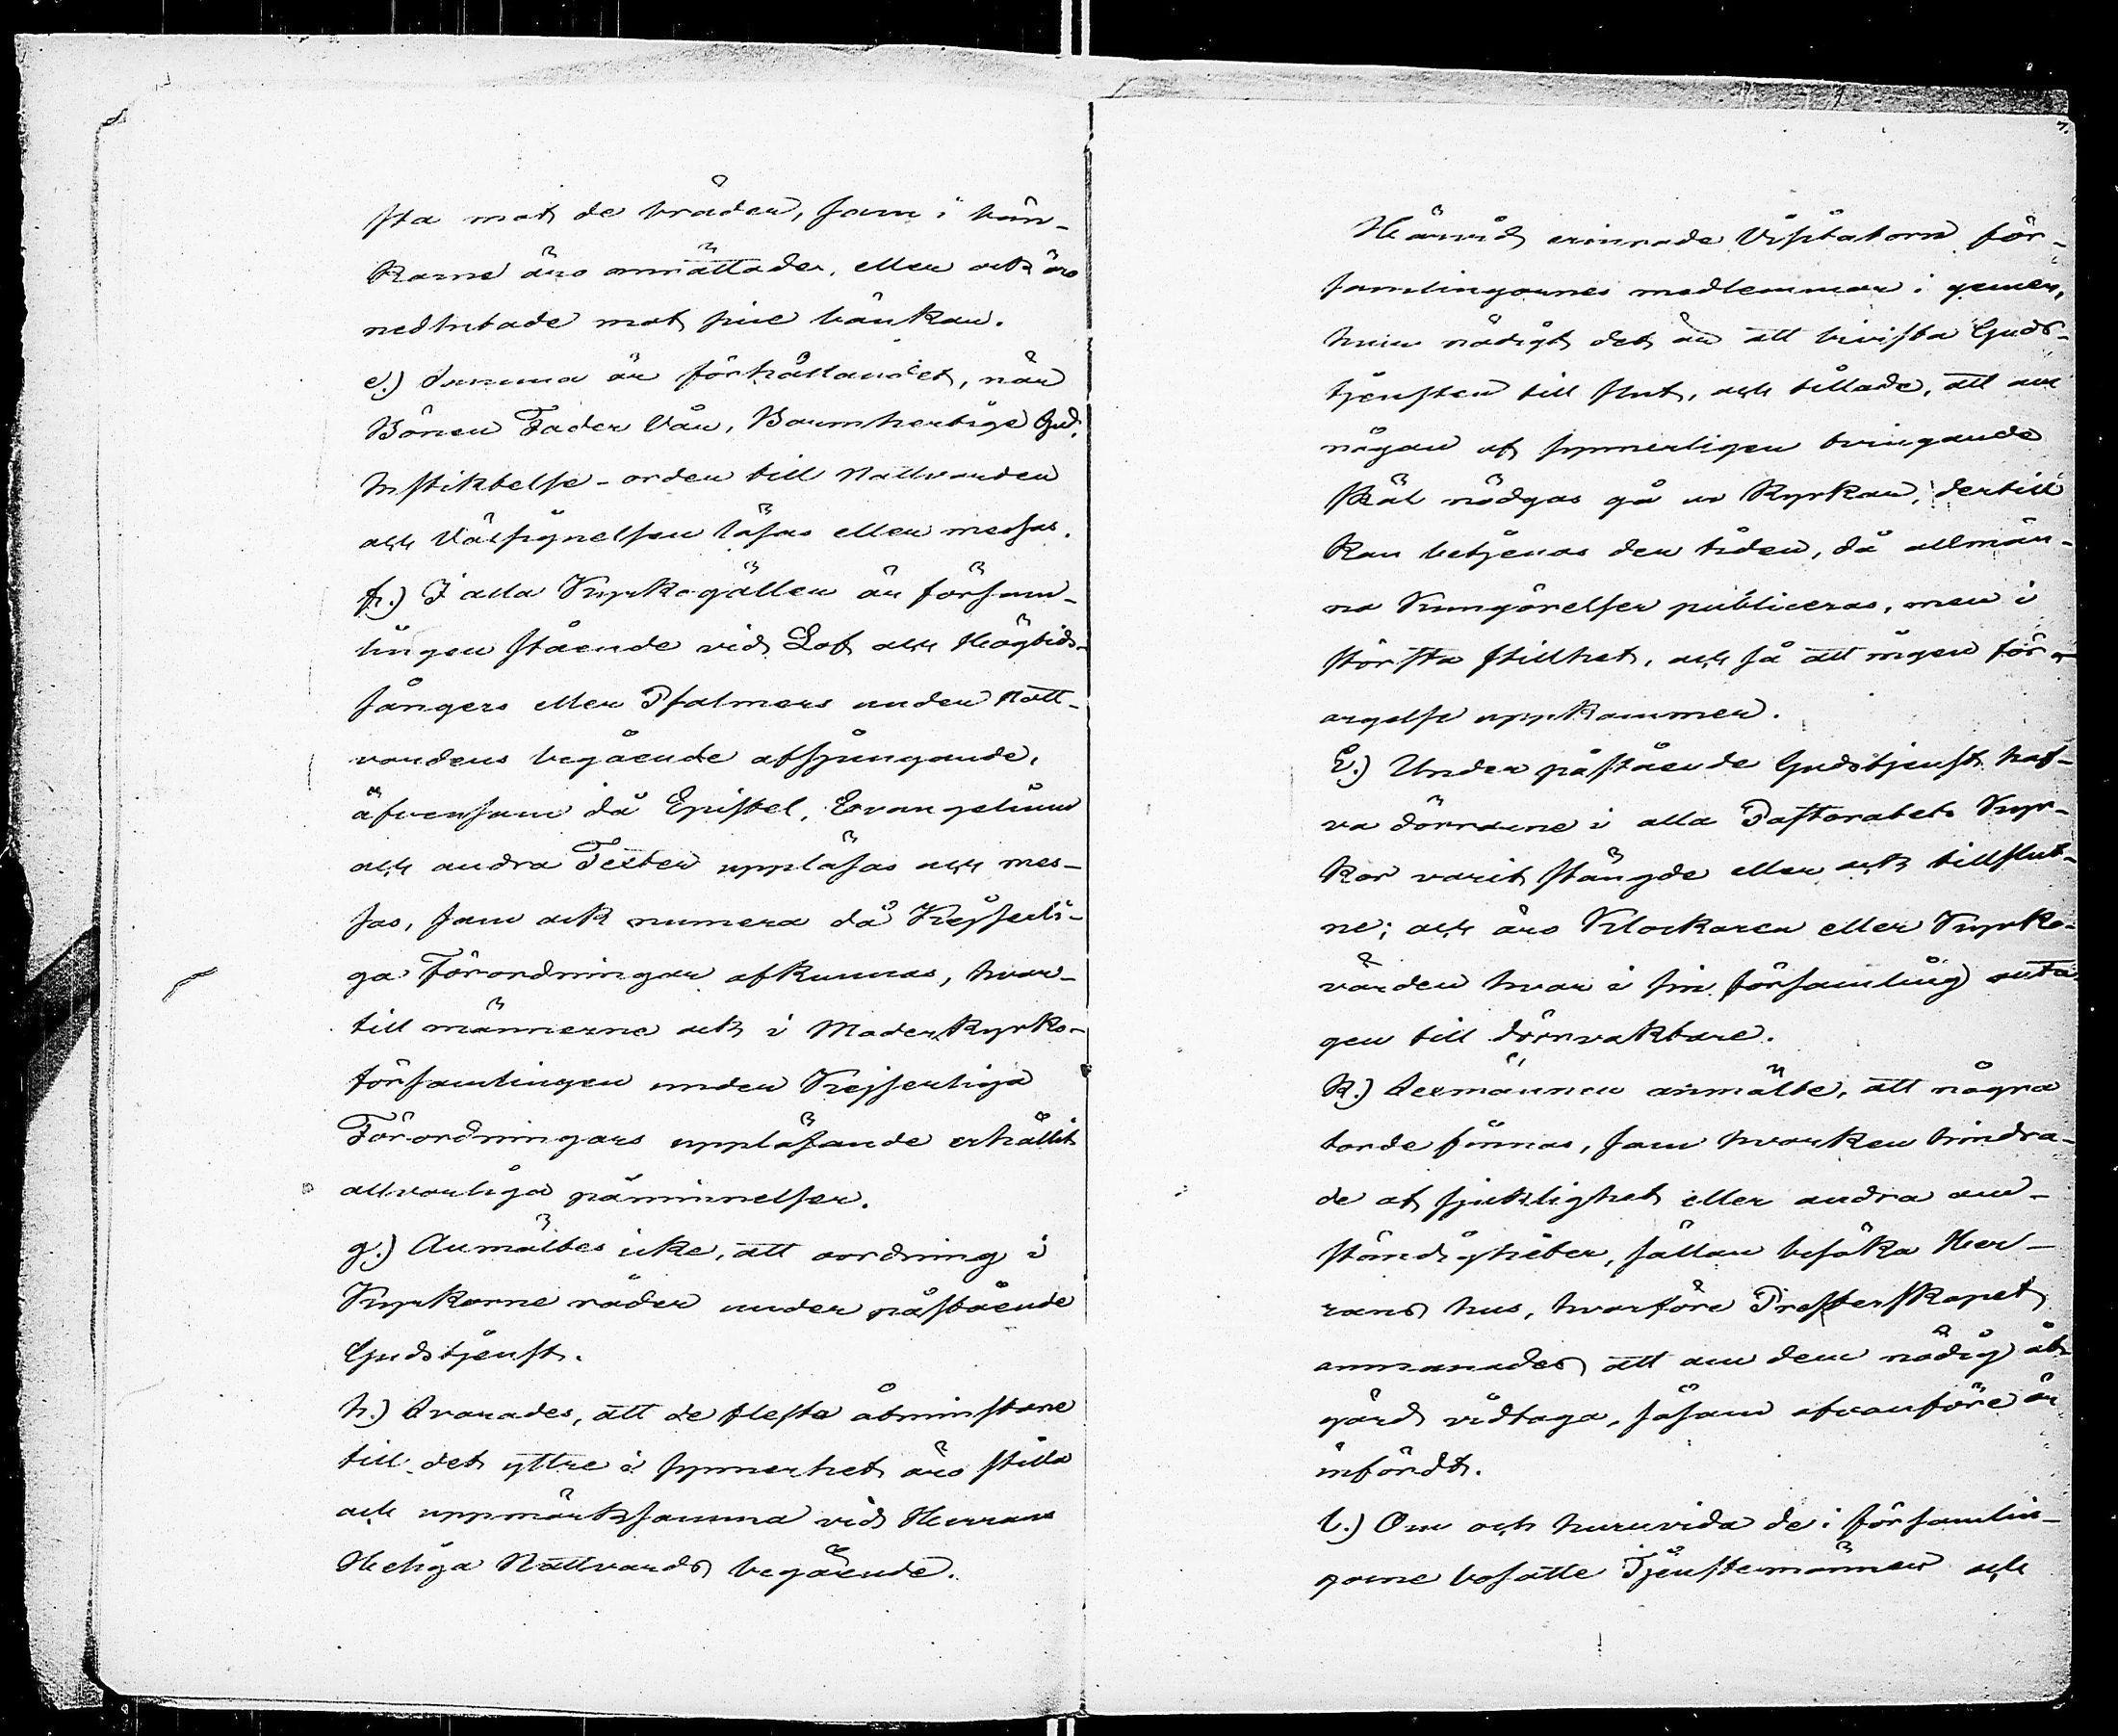 sta mot de bräden, som i bän-
karne äro inrättade, eller ock äro
nedlutade mot sine bänkar.
e.) Samma är förhållandet, når
Bönen Fader Vår, Barmhertige Gud,
Instiktelse-orden till Nattvarden
och Välsignelsen läsas eller messas.
f.) I alla Kyrkogällen är försam-
lingen stående vid Lof och Högtids-
sångers eller Psalmers under Natt-
vardens begående afsjungande,
äfvensom då Epistel, Evangelium
och andra Texter uppläsas och mes-
sas, som ock numera då Kejserli-
ga Förordningar afkunnas, hvar-
till männerne ock i Moderkyrko-
församlingen under Kejserliga
Förordningars uppläsande erhållit
allvarliga påminnelser.
g.) Anmältes icke, att oordning i
Kyrkorne råder under påstående
Gudstjenst.
h.) Svarades, att de flesta åtminstone
till det yttre i synnerhet äro stilla
och uppmärksamma vid Herrans
Heliga Nattvards begående.
7.
Härvid erinrade Visitatorn för-
samlingarnes medlemmar i gemen,
huru nödigt det är att bivista Guds-
tjensten till slut, och tillade, att om
någon af synnerligen tvingande
skäl nödgas gå ur Kyrkan, dertill
kan betjenas den tiden, då allmän-
na Kungörelser publiceras, men i
största stillhet, och så att ingen för-
argelse uppkommer.
i.) Under påstående Gudstjenst haf-
va dörrarne i alla Pastoratets Kyr-
kor varit stängde eller ock tillslut-
ne; och äro Klockaren eller Kyrko-
värden hvar i sin församling anta-
gen till dörrvaktare.
k.) Sexmännen anmälte, att några
torde finnas, som hvarken hindra-
de af sjuklighet eller andra om-
ständigheter, sällan besöka Her-
rans hus, hvarföre Presterskapet
anmanades att om dem nödig åt-
gärd vidtaga, såsom ofvanföre är
infördt.
l.) Om och huruvida de i församlin-
garne bosatte Tjenstemännen och